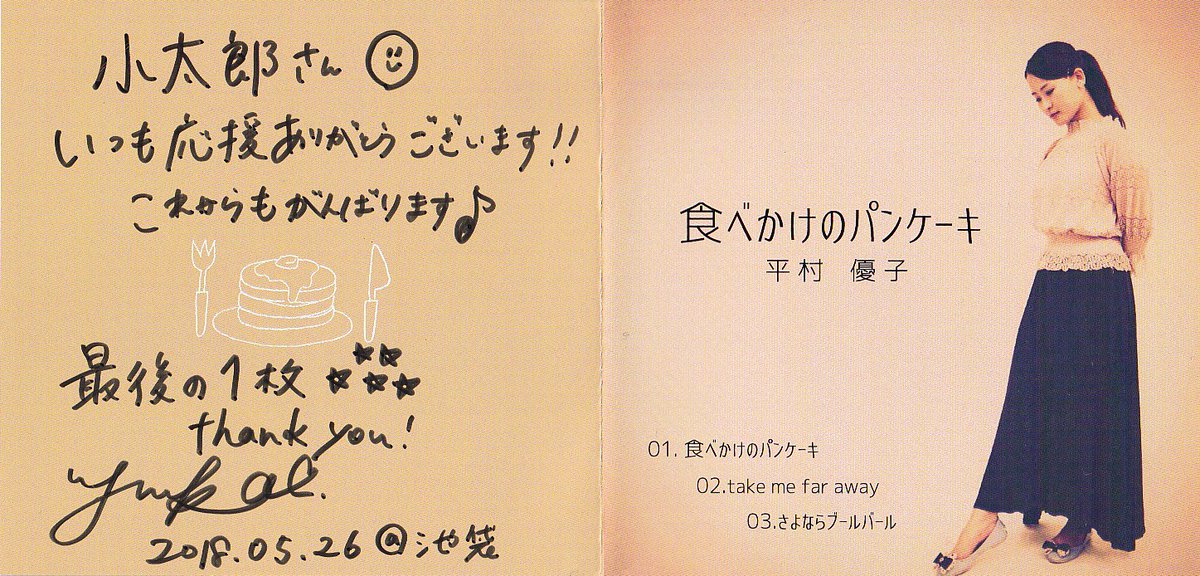 小太郎さん
いつも応援ありがとうございます!!
これからもがんばります♪
最後の1枚
thank you!
2018.05.26 @池袋
食べかけのパンケーキ
平村 優子
01. 食べかけのパンケーキ
02.take me far away
03.さよならブールバール